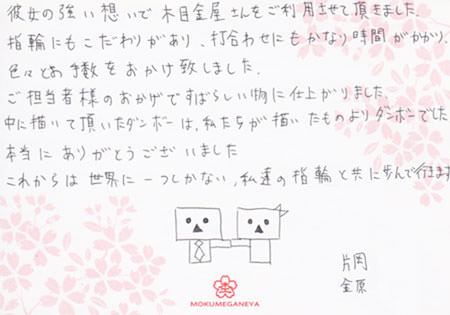 彼女の強い想いで木目金屋さんをご利用させて頂きました。
指輪にもこだわりがあり、打合わせにもかなり時間がかかり、
色々とお手数をおかけ致しました。
ご担当者様のおかげですばらしい物に仕上がりました。
中に描いて頂いたダンボーは、私たちが描いたものよりダンボーでした
本当にありがとうございました
これからは世界に一つしかない、私達の指輪と共に歩んで行きます
片岡
金原
MOKUMEGANEYA